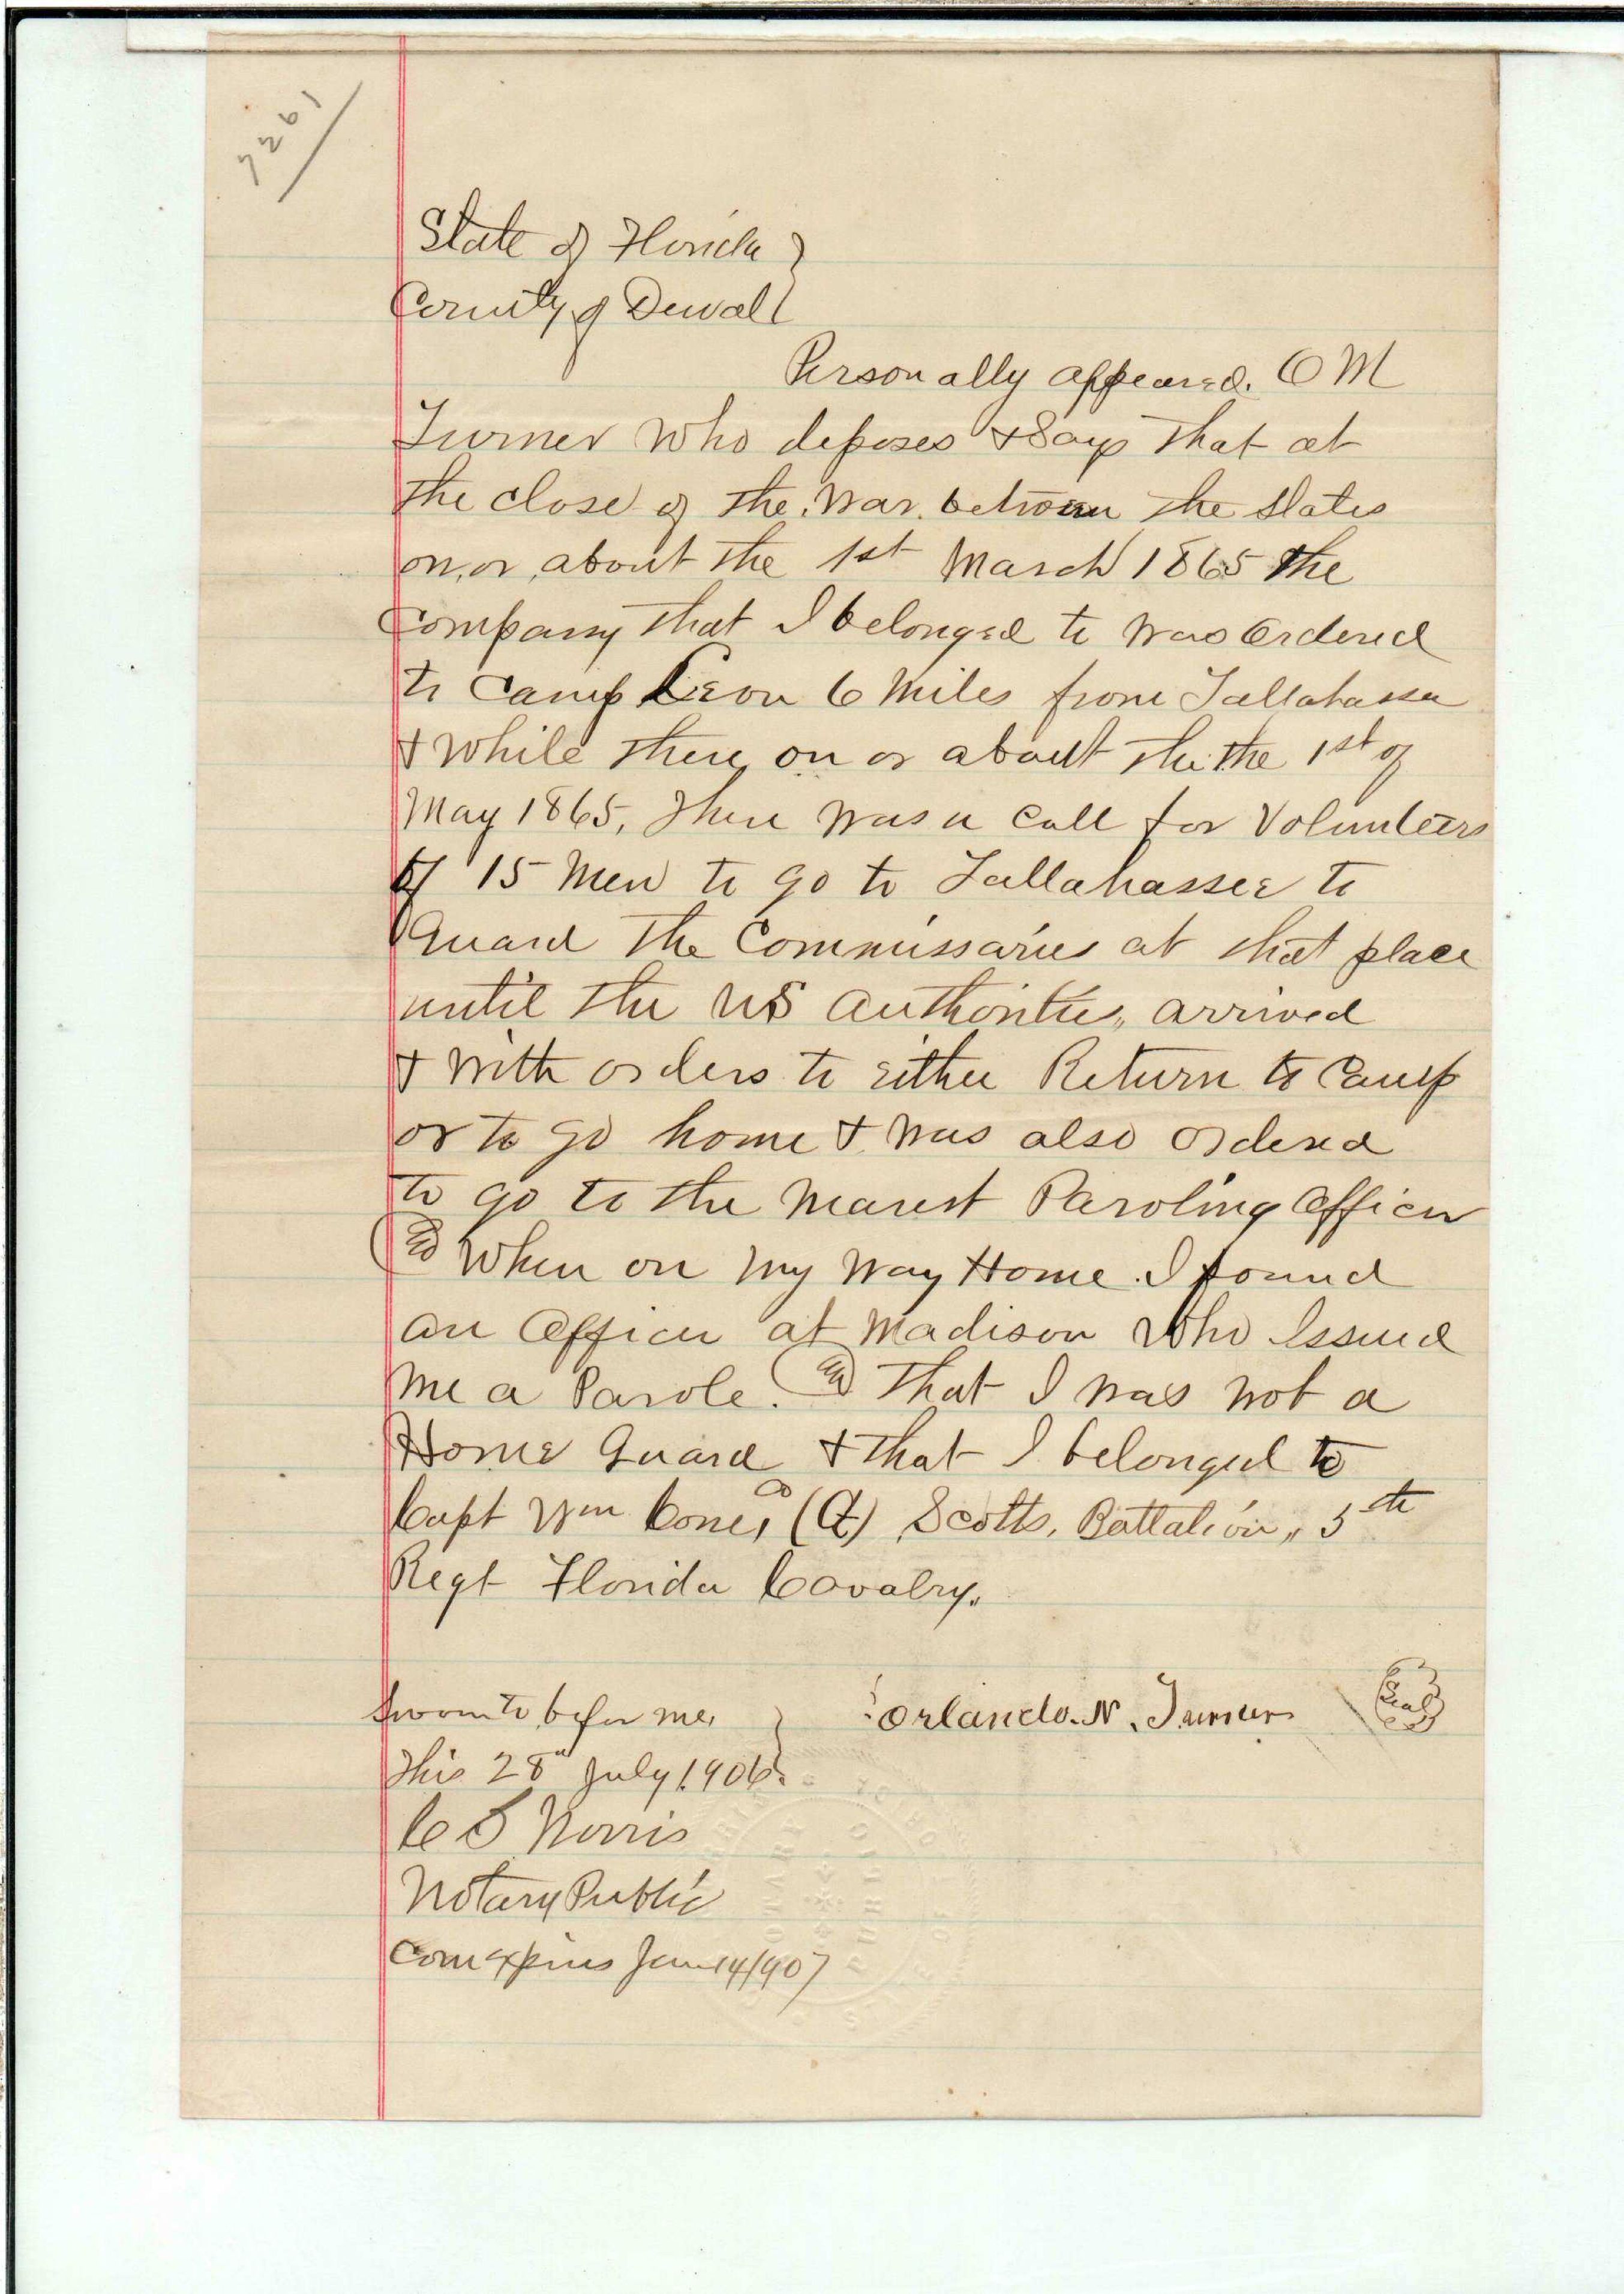 7261
State of Florida
County of Duval
Personally appeared. O M
Turner who deposes & Says that at
the close of the War between the States
on, or, about the 1st March 1865 the
Company that I belonged to was Ordered
to Camp Leon 6 Miles from Tallahassee
& While there on or about the the 1st of
May 1865, there was a call for Volunteers
of 15 Men to go to Tallahassee to
Guard the Commissaries at that place
until the US Authorities, arrived
& with orders to either Return to Camp
or to go home & was also ordered
to go to the Nearest Paroling Officer
When on my way Home. I found
an Officer at Madison Who Issued
me a Parole. That I was not a
Home Guard & that I belonged to
Capt Wm Cone, Co Scotts, Battalion, 5th
Regt Florida Cavalry.
Sworn to before me,
this 28" July 1906.
Orlando. N. Turner
Seal
C S Norris
Notary Public
Com expires Jan 14/1907
NOTARY PUBLIC